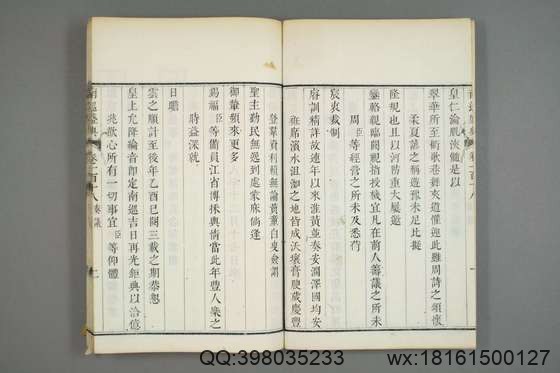 皇仁淪肌浹髓是以
翠華所至衢歌巷舞夾道懽迎此雖周詩之頌懷
柔夏諺之稱遊豫未足比擬
隆規也且以河防重大屢廑
鑾輅親臨閱視指授機宜凡在前人籌議之所未
周臣等經營之所未及悉荷
宸衷裁制
府訓精詳故連年以來淮黃並奏安瀾澤國均安
袵席濱水沮洳之地皆成沃壤膏腴歲慶豐
登羣資利賴無論黃童白叟僉謂
聖主勤民無遠到處蒙庥倘逢
御輦頻來更多
錫福臣等備員江省博採輿情當此年豐人樂之
時益深就
日瞻
雲之願計至後年乙酉已閱三載之期恭懇
皇上允降綸音卽定南巡吉日再光鉅典以洽億
兆歡心所有一切事宜臣等仰體
南巡盛典 卷一百八 奏議
QQ:398035233
wx:18161500127